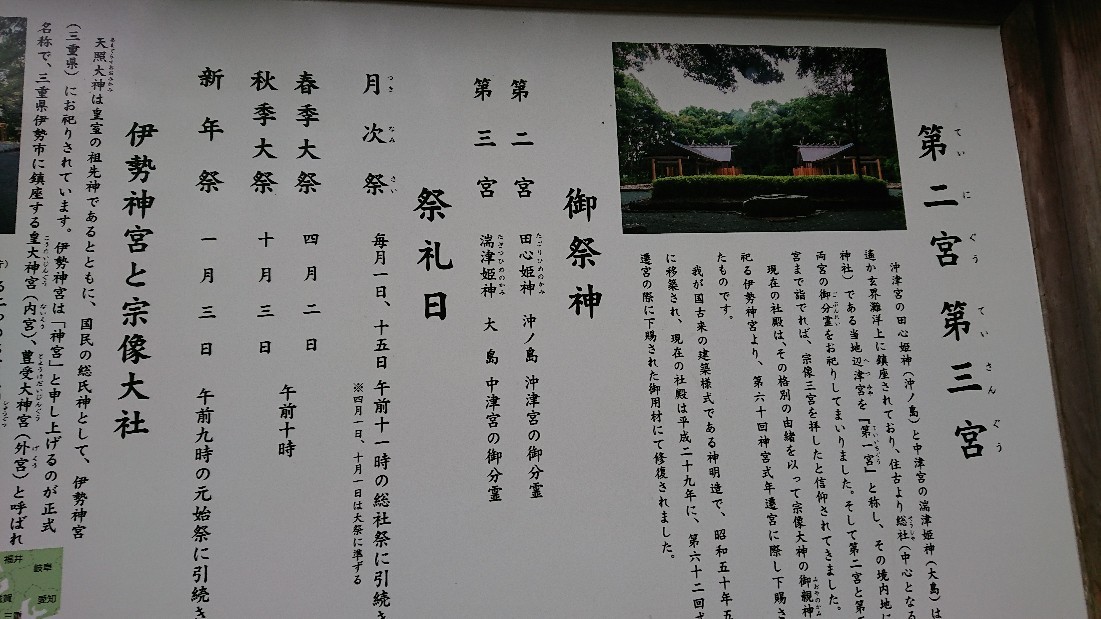 第二宮 第三宮
ていにぐう ていさんぐう
沖津宮の田心姫神（沖ノ島）と中津宮の湍津姫神（大島）は
遥か玄界灘洋上に鎮座されており、住古より総社（中心となる
神社）である当地辺津宮を『第一宮』と称し、その境内地に
両宮の御分霊をお祀りしてまいりました。そして第二宮と第
宮まで詣でれば、宗像三宮を拝したと信仰されてきました。
現在の社殿は、その格別の由緒を以って宗像大神の御親神
祀る伊勢神宮より、第六十回神宮式年遷宮に際し下賜さ
たものです。
我が国古来の建築様式である神明造で、昭和五十年五
に移築され、現在の社殿は平成二十九年に、第六十二回
遷宮の際に下賜された御用材にて修復されました。
御祭神
第二宮 田心姫神 沖ノ島 沖津宮の御分霊
たごりひめのかみ
第三宮 湍津姫神 大島 中津宮の御分霊
たぎつひめのかみ
祭礼日
月次祭 毎月一日、十五日 午前十一時の総社祭に引続き
つきなみさい
※四月一日、十月一日は大祭に準ずる
春季大祭 四月二日
午前十時
秋季大祭 十月三日
新年祭 一月三日 午前九時の元始祭に引続き
伊勢神宮と宗像大社
天照大神は皇室の祖先神であるとともに、国民の総氏神として、伊勢神宮
（三重県）にお祀りされています。伊勢神宮は「神宮」と申し上げるのが正式
名称で、三重県伊勢市に鎮座する皇大神宮（内宮）、豊受大神宮（外宮）と呼ばれ
福井
岐阜
愛知